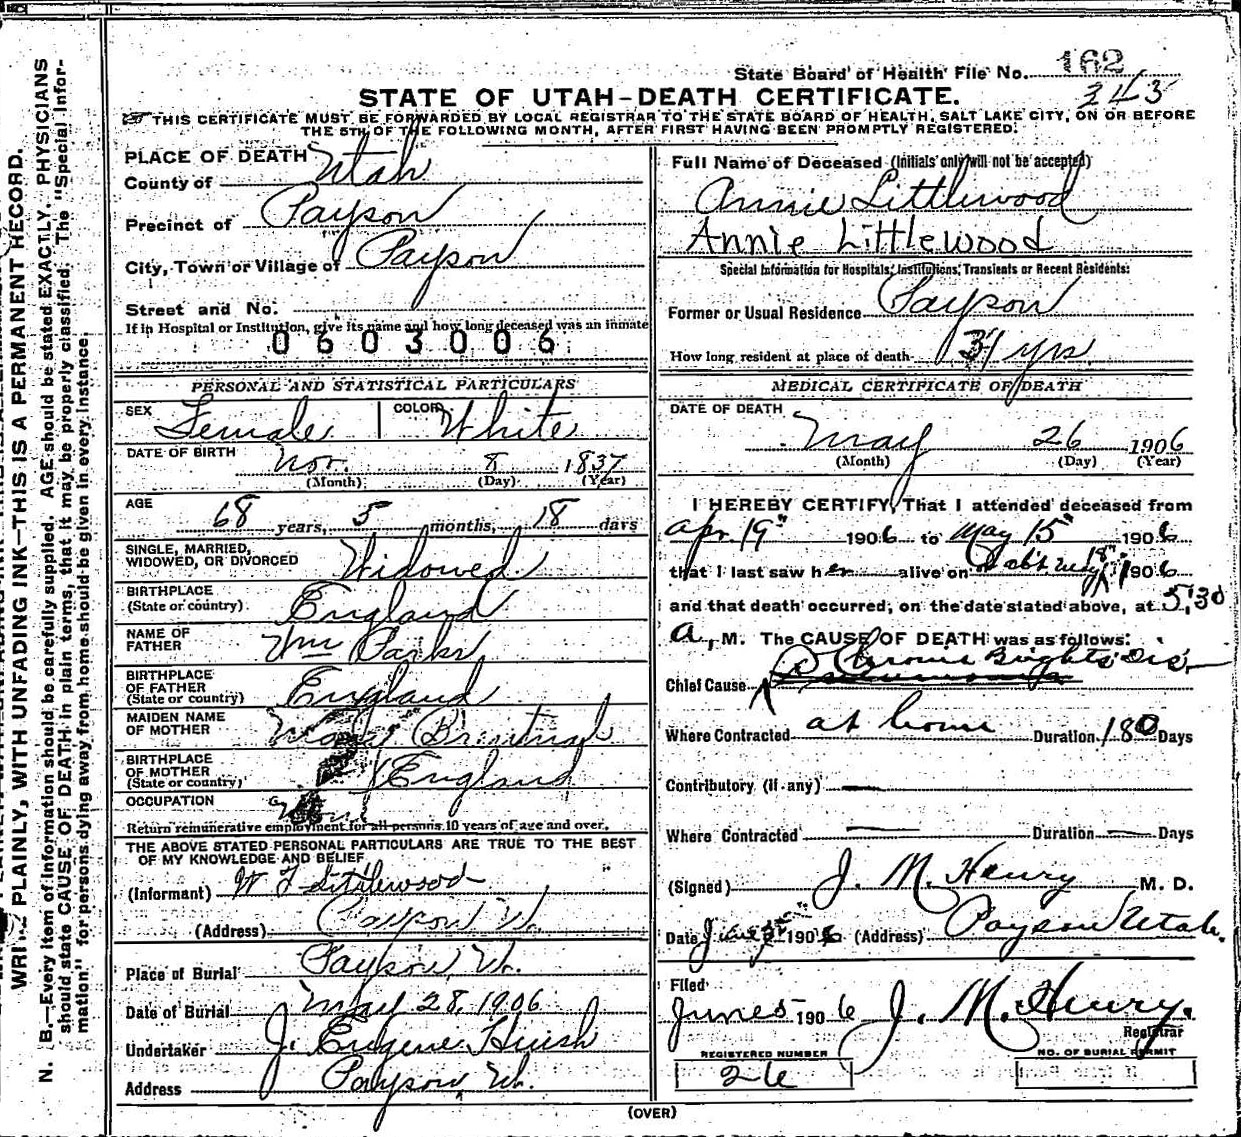 State Board of Health File No. 162
243
STATE OF UTAH—DEATH CERTIFICATE.
THIS CERTIFICATE MUST BE FORWARDED BY LOCAL REGISTRAR TO THE STATE BOARD OF HEALTH, SALT LAKE CITY, ON OR BEFORE
THE 5TH OF THE FOLLOWING MONTH, AFTER FIRST HAVING BEEN PROMPTLY REGISTERED.
WRITE PLAINLY, WITH UNFADING INK—THIS IS A PERMANENT RECORD.
N. B.—Every item of information should be carefully supplied. AGE should be stated EXACTLY. PHYSICIANS
should state CAUSE OF DEATH in plain terms, that it may be properly classified. The "Special Infor-
mation" for persons dying away from home should be given in every instance.
PLACE OF DEATH
County of Utah
Precinct of Payson
City, Town or Village of Payson
Street and No.
If in Hospital or Institution, give its name and how long deceased was an inmate
0603006
PERSONAL AND STATISTICAL PARTICULARS
SEX Female COLOR White
DATE OF BIRTH Nov. 8 1837
(Month) (Day) (Year)
AGE 68 years, 5 months, 18 days
SINGLE, MARRIED,
WIDOWED, OR DIVORCED Widowed
BIRTHPLACE
(State or country) England
NAME OF
FATHER Wm Parks
BIRTHPLACE
OF FATHER
(State or country) England
MAIDEN NAME
OF MOTHER
BIRTHPLACE
OF MOTHER
(State or country) England
OCCUPATION
Return remunerative employment for all persons 10 years of age and over.
THE ABOVE STATED PERSONAL PARTICULARS ARE TRUE TO THE BEST
OF MY KNOWLEDGE AND BELIEF
(Informant) W F Littlewood
(Address) Payson Ut.
Place of Burial Payson, Ut.
Date of Burial May 28, 1906
Undertaker J. Eugene Huish
Address Payson Ut.
Full Name of Deceased (Initials only will not be accepted)
Annie Littlewood
Annie Littlewood
Special Information for Hospitals, Institutions, Transients or Recent Residents:
Former or Usual Residence Payson
How long resident at place of death 31 yrs
MEDICAL CERTIFICATE OF DEATH
DATE OF DEATH
May 26 1906
(Month) (Day) (Year)
I HEREBY CERTIFY, That I attended deceased from
Apr. 19" 1906 to May 15" 1906
that I last saw her alive on abt. May 18" 1906
and that death occurred, on the date stated above, at 5,30
a, M. The CAUSE OF DEATH was as follows:
Chronic Brights Dis.
Chief Cause
Where Contracted at home Duration 180 Days
Contributory (if any) —
Where Contracted — Duration — Days
(Signed) J. M. Henry M. D.
Date 1906 (Address) Payson Utah.
Filed
June 5 1906 J. M. Henry.
Registrar
REGISTERED NUMBER
26
NO. OF BURIAL PERMIT
(OVER)